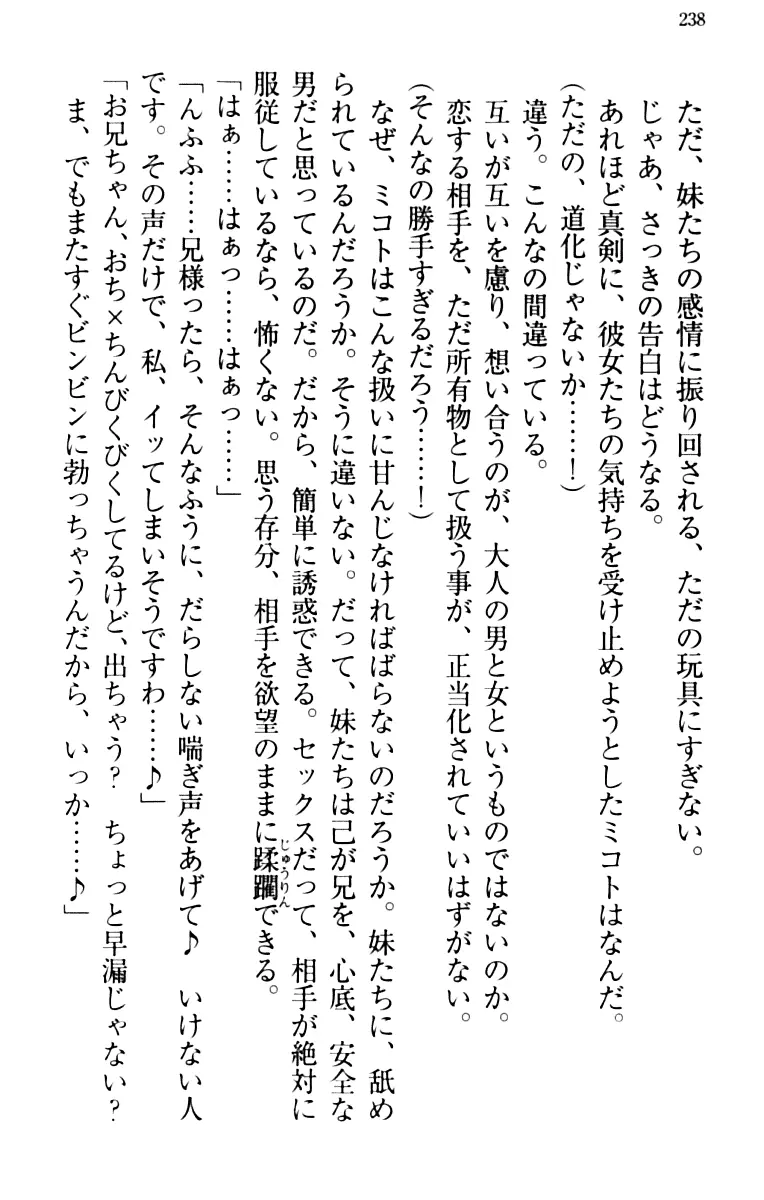 238
ただ、妹たちの感情に振り回される、ただの玩具にすぎない。
じゃあ、さっきの告白はどうなる。
あれほど真剣に、彼女たちの気持ちを受け止めようとしたミコトはなんだ。
(ただの、道化じゃないか……！)
違う。こんなの間違っている。
互いが互いを慮り、想い合うのが、大人の男と女というものではないのか。
恋する相手を、ただ所有物として扱う事が、正当化されていいはずがない。
(そんなの勝手すぎるだろう……！)
なぜ、ミコトはこんな扱いに甘んじなければばらないのだろうか。妹たちに、舐め
られているんだろうか。そうに違いない。だって、妹たちは己が兄を、心底、安全な
男だと思っているのだ。だから、簡単に誘惑できる。セックスだって、相手が絶対に
服従しているなら、怖くない。思う存分、相手を欲望のままに蹂躙じゅうりんできる。
「はぁ……はぁっ……はぁっ……」
「んふふ……兄様ったら、そんなふうに、だらしない喘ぎ声をあげて♪　いけない人
です。その声だけで、私、イッてしまいそうですわ……♪」
「お兄ちゃん、おち×ちんびくびくしてるけど、出ちゃう？　ちょっと早漏じゃない？
ま、でもまたすぐビンビンに勃っちゃうんだから、いっか……♪」